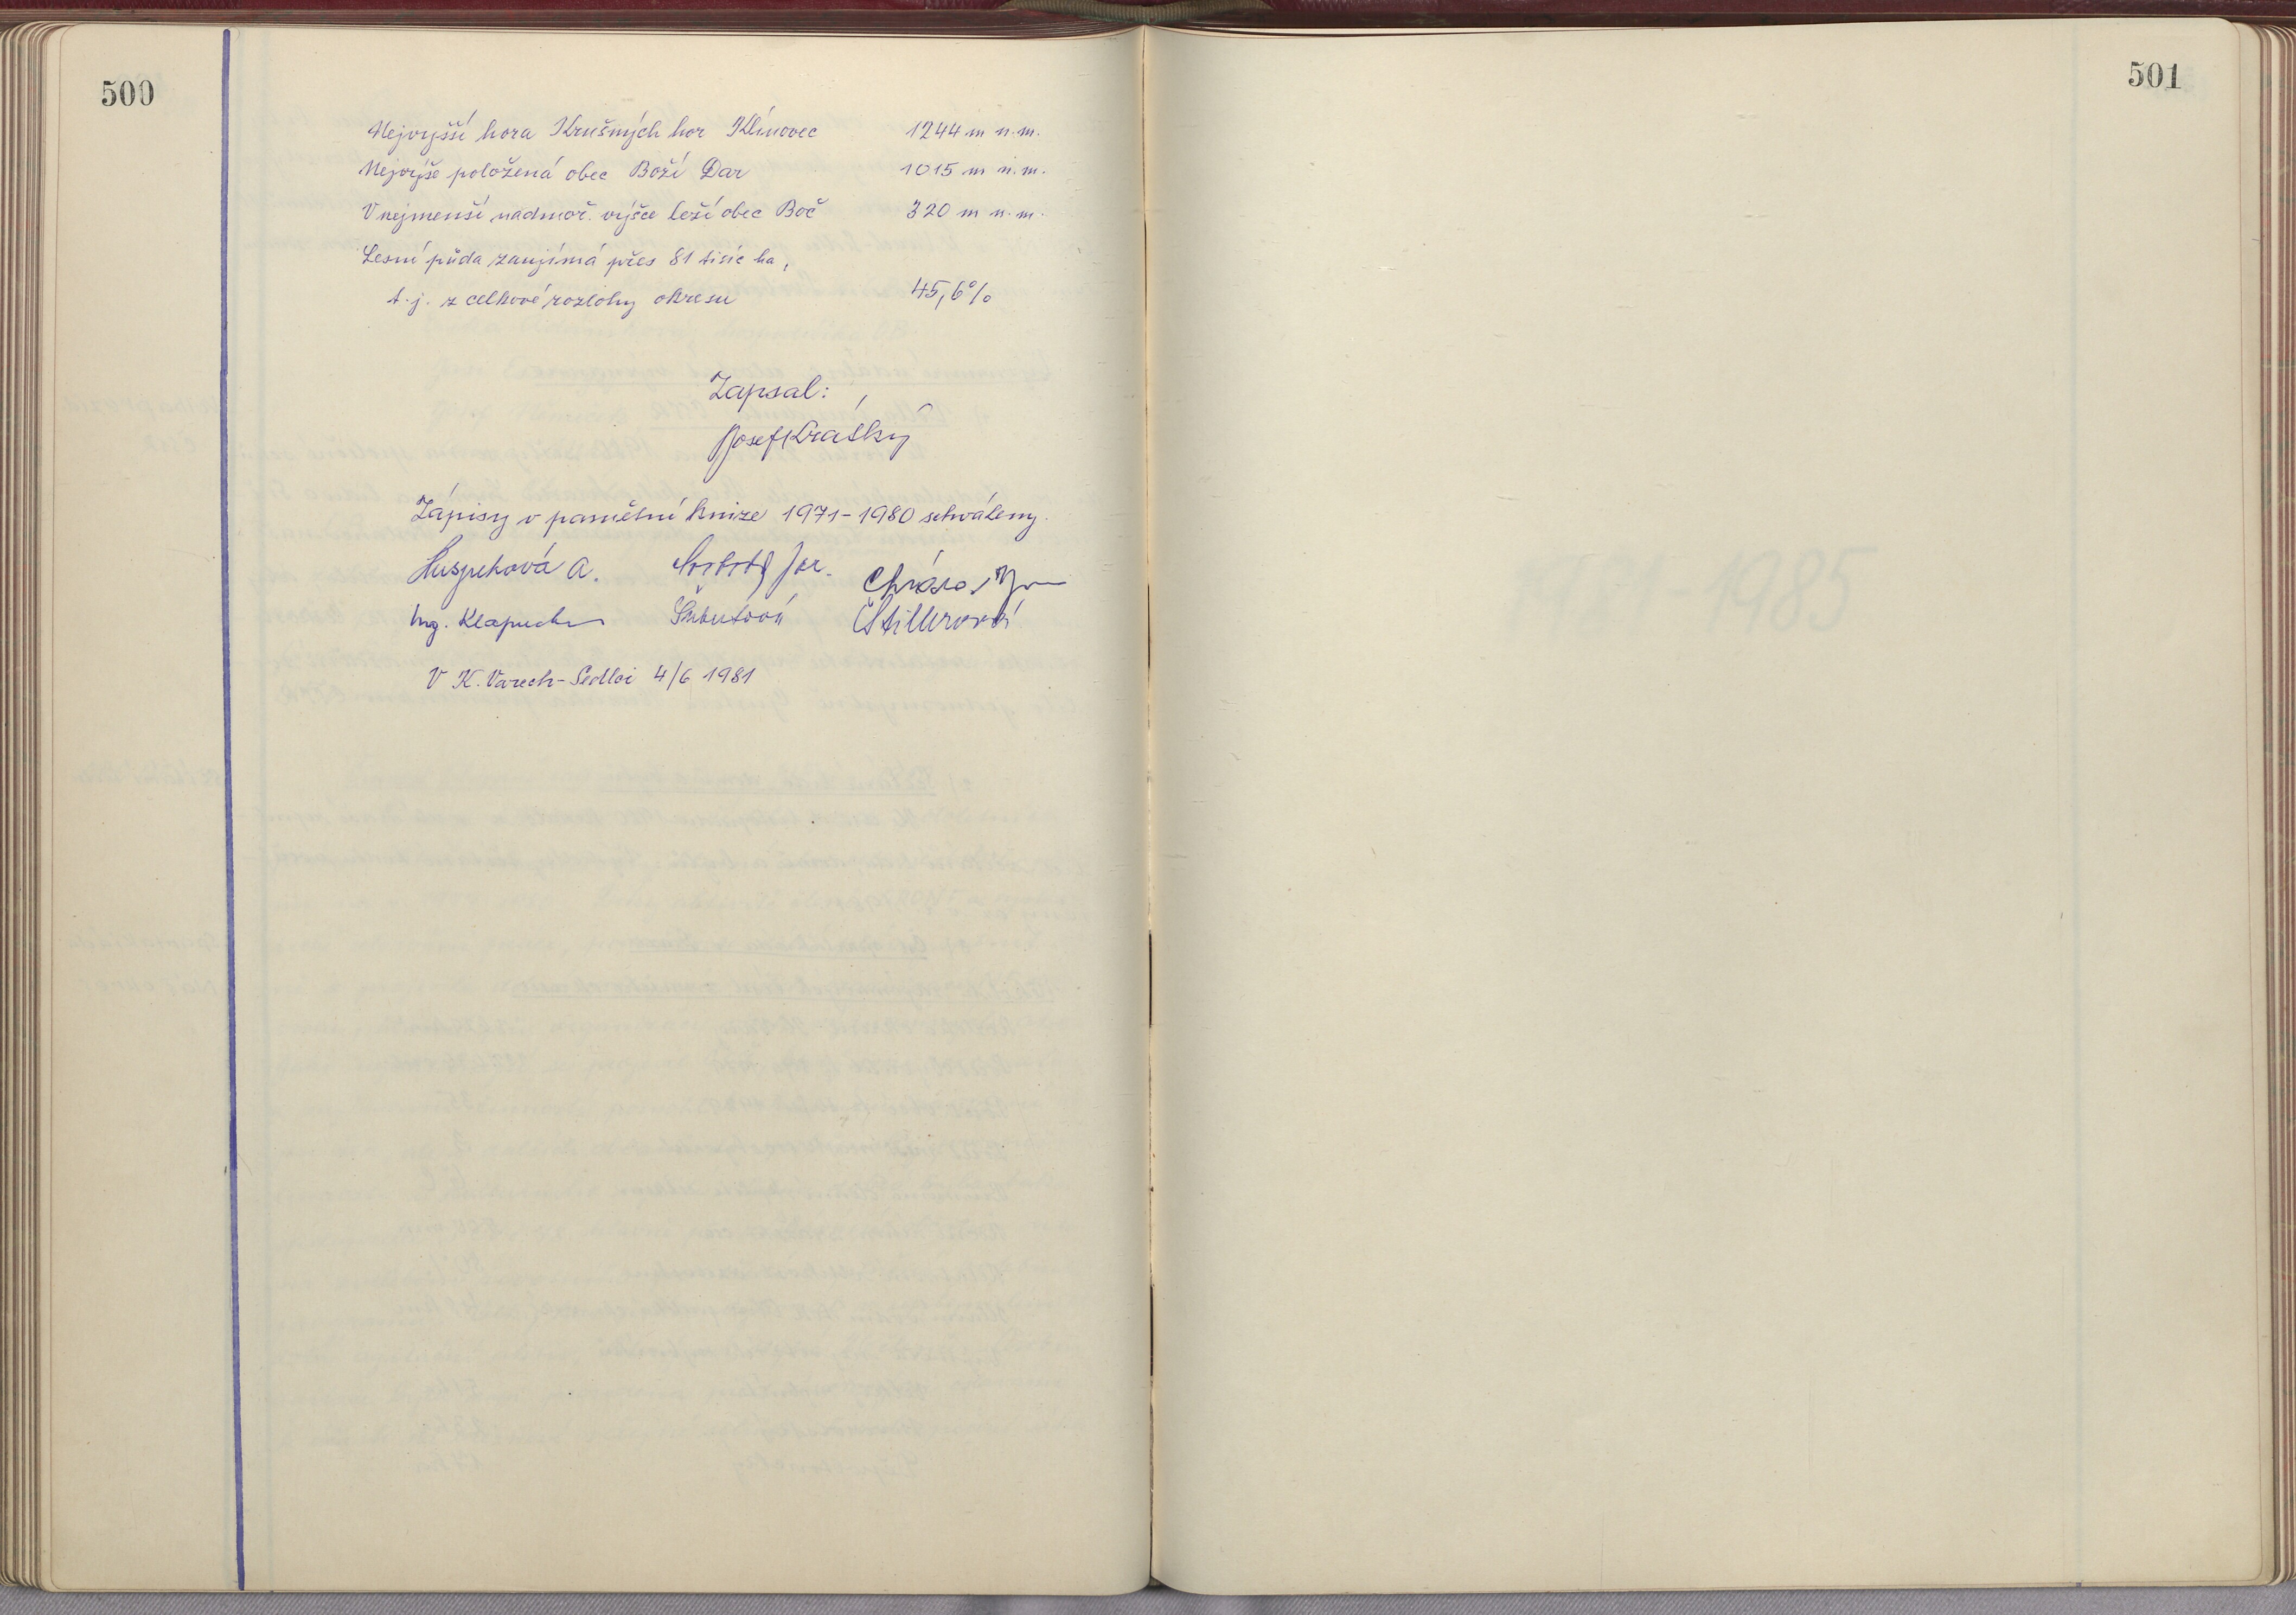 500
Nejvyšší hora Krušných hor Klínovec 1244 m n.m.
Nejvýše položená obec Boží Dar 1015 m n.m.
V nejmenší nadmoř. výšce leží obec Boč 320 m n.m.
Lesní půda zaujímá přes 81 tisíc ha,
t.j. z celkové rozlohy okresu 45,6%
Zapsal:
Josef Krátký
Zápisy v pamětní knize 1971-1980 schváleny.
A.
Ing.
V K. Varech-Sedleci 4/6 1981
501
1985